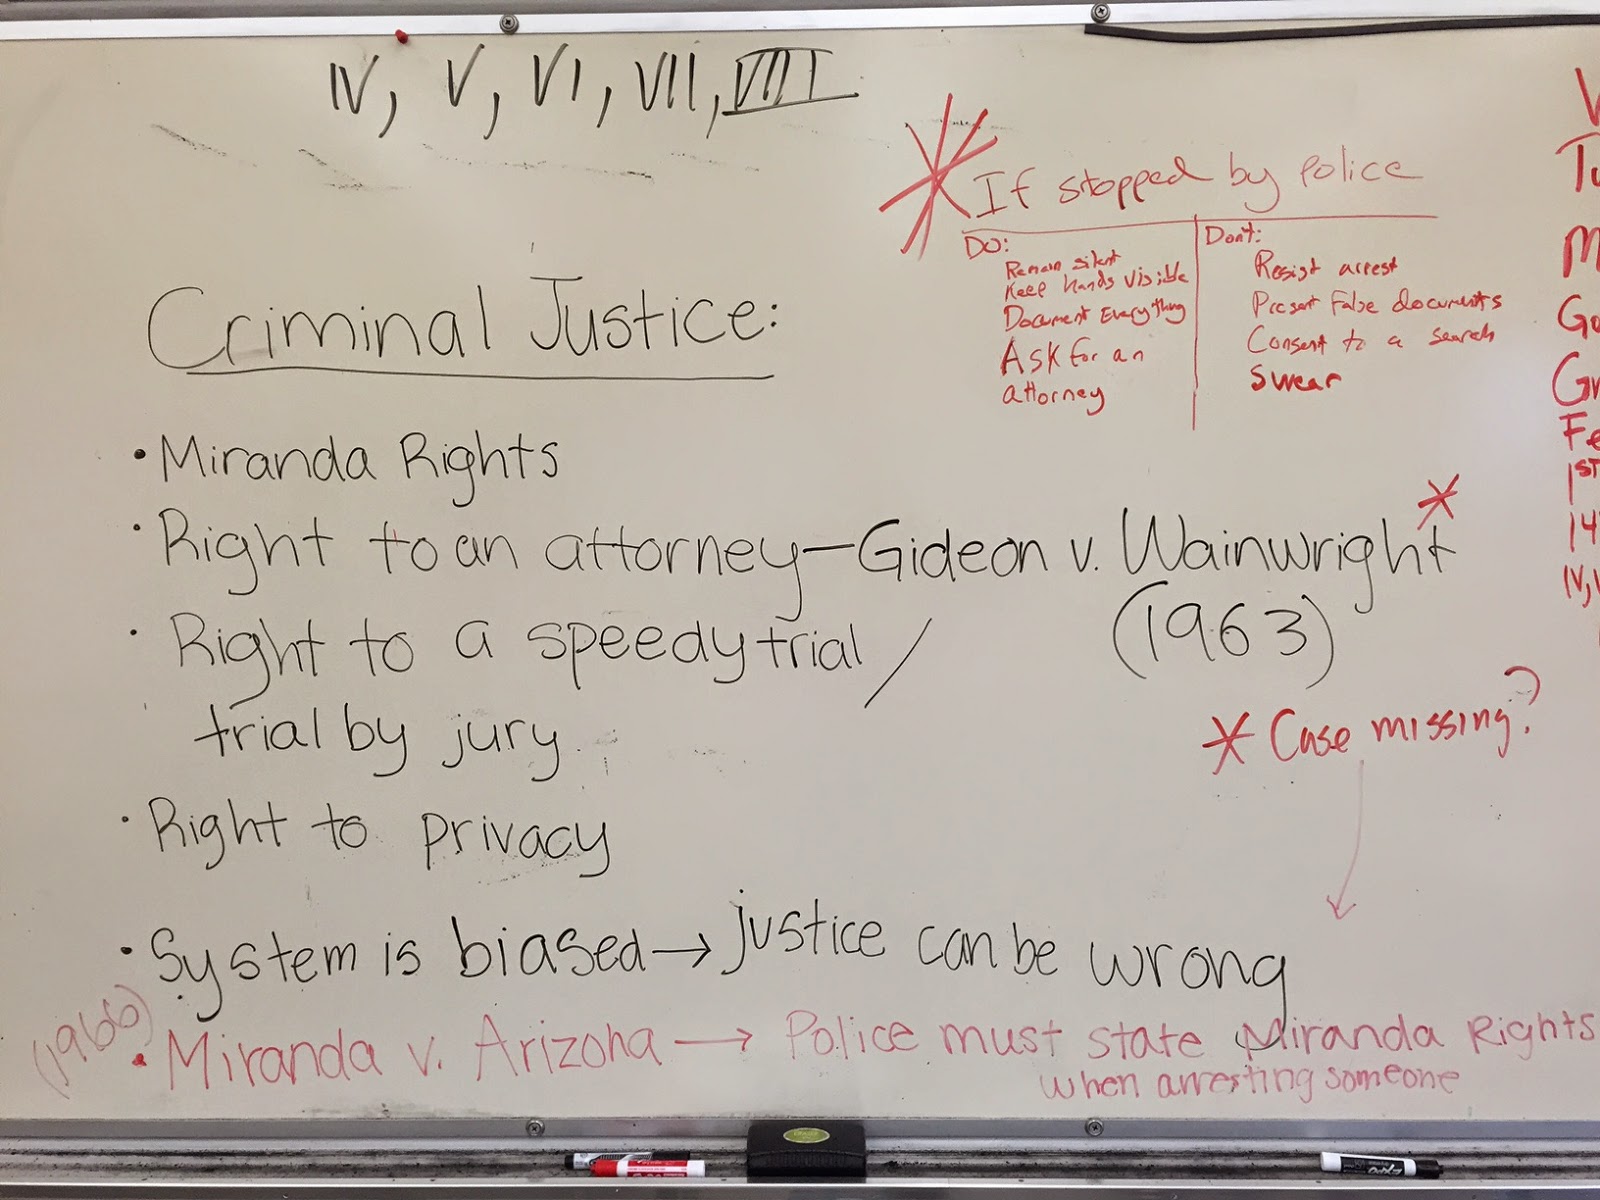 IV, V, VI, VII, VIII
If stopped by police
DO:
Remain silent
Keep hands visible
Document Everything
Ask for an
attorney
Don't:
Resist arrest
Present false documents
Consent to a search
Swear
Criminal Justice:
• Miranda Rights
• Right to an attorney—Gideon v. Wainwright*
(1963)
• Right to a speedy trial /
trial by jury
* Case missing?
• Right to privacy
• System is biased → justice can be wrong
(1966)
• Miranda v. Arizona → Police must state Miranda Rights
when arresting someone
M
Fe
1ST
14
IV,